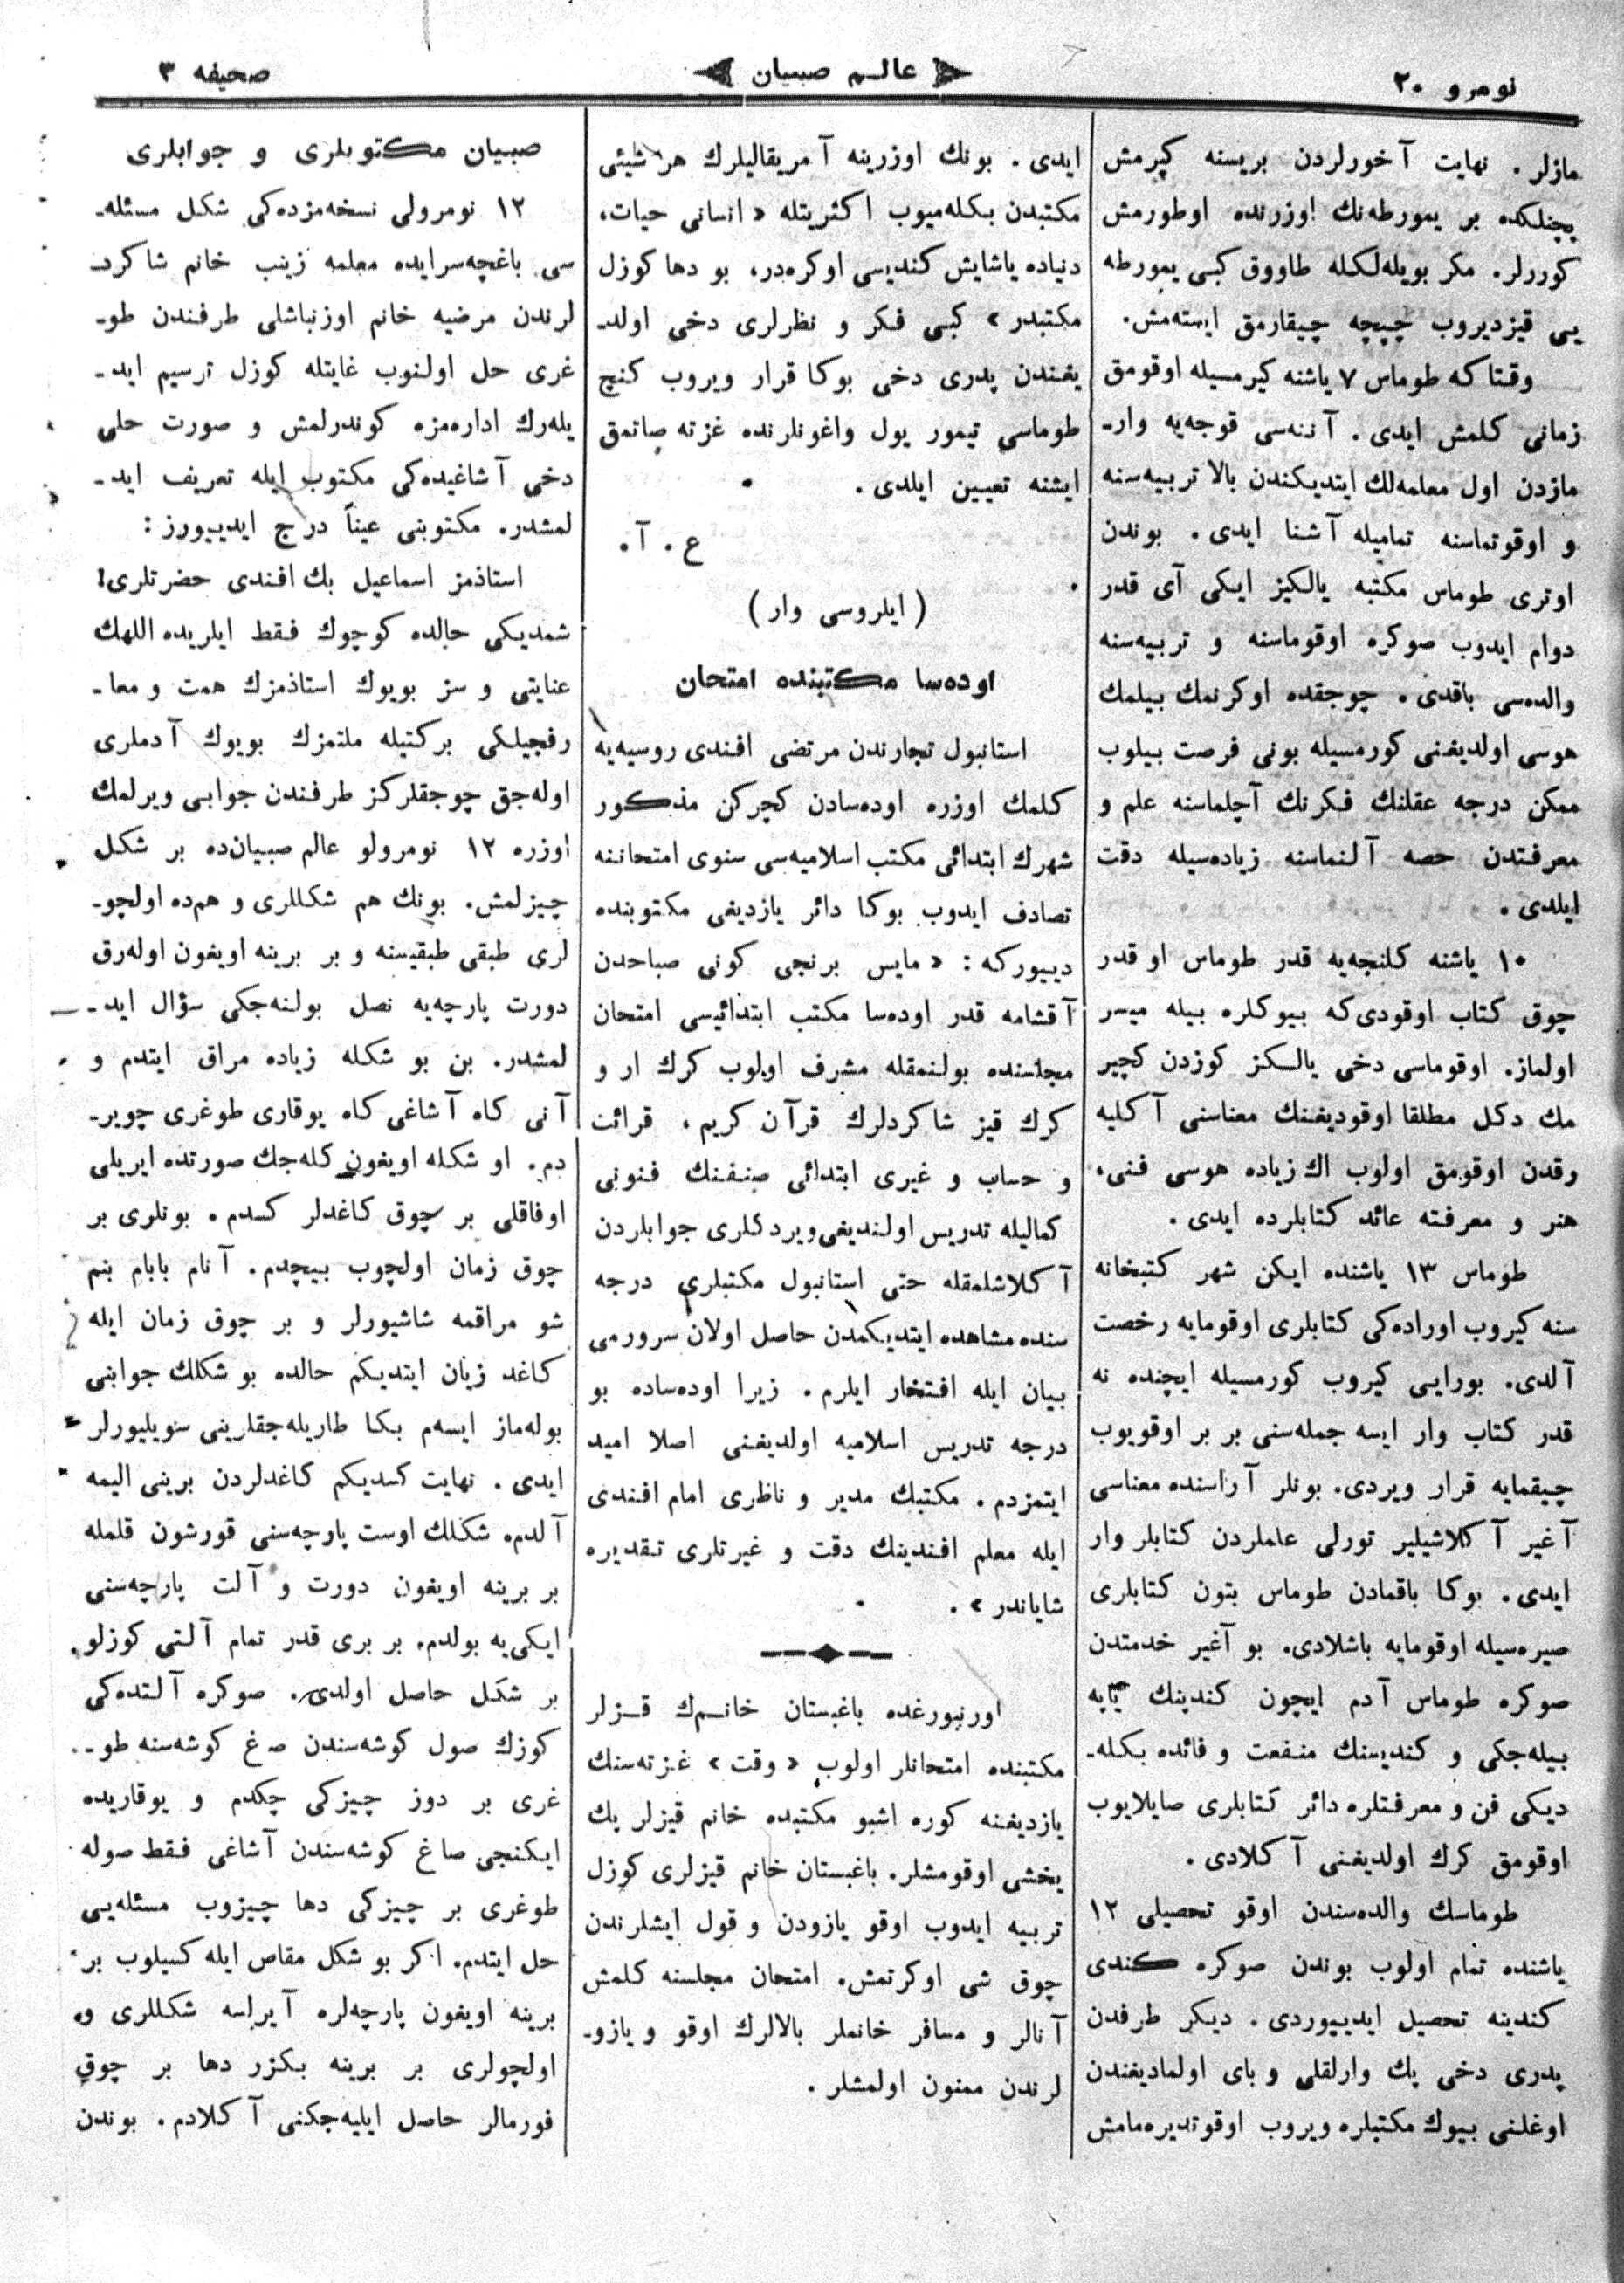 نومرو ۲۰
عالـم صبیان
صحیفه ۳
مازلر. نهایت آخورلردن بریسنه کیرمش
پچنلکده بر یمورطه‌نك اوزرنده اوطورمش
کوررلر. مکر بویله‌لکله طاووق کبی یمورطه
یی قیزدیروب چیپچه چیقارمق ایسته‌مش.
وقتاکه طوماس ۷ یاشنه کیرمسیله اوقومق
زمانی کلمش ایدی. آننه‌سی قوجه‌یه وار-
مازدن اول معلمه‌لك ایتدیکندن بالا تربیه‌سنه
و اوقوتماسنه تمامیله آشنا ایدی. بوندن
اوتری طوماس مکتبه یالکیز ایکی آی قدر
دوام ایدوب صوکره اوقوماسنه و تربیه‌سنه
والده‌سی باقدی. چوجقده اوکرنمك بیلمك
هوسی اولدیغنی کورمسیله بونی فرصت بیلوب
ممکن درجه عقلنك فکرنك آچلماسنه علم و
معرفتدن حصه آلنماسنه زیاده‌سیله دقت
ایلدی.
۱۰ یاشنه کلنجه‌یه قدر طوماس او قدر
چوق کتاب اوقودی‌که بیوکلره بیله میسر
اولماز. اوقوماسی دخی یالکز کوزدن کچیر
مك دکل مطلقا اوقودیغنك معناسنی آکلیه
رقدن اوقومق اولوب اك زیاده هوسی فنی،
هنر و معرفته عائد کتابلرده ایدی.
طوماس ۱۳ یاشنده ایکن شهر کتبخانه
سنه کیروب اوراده‌کی کتابلری اوقومایه رخصت
آلدی. بورایی کیروب کورمسیله ایچنده نه
قدر کتاب وار ایسه جمله‌سنی بر بر اوقویوب
چیقمایه قرار ویردی. بونلر آراسنده معناسی
آغیر آکلاشیلیر تورلی عاملردن کتابلر وار
ایدی. بوکا باقمادن طوماس بتون کتابلری
صیره‌سیله اوقومایه باشلادی. بو آغیر خدمتدن
صوکره طوماس آدم ایچون کندینك یاپه
بیله‌جکی و کندیسنك منفعت و فائده بکله-
دیکی فن و معرفتلره دائر کتابلری صایلایوب
اوقومق کرك اولدیغنی آکلادی.
طوماسك والده‌سندن اوقو تحصیلی ۱۲
یاشنده تمام اولوب بوندن صوکره کندی
کندینه تحصیل ایدییوردی. دیکر طرفدن
پدری دخی پك وارلقلی و بای اولمادیغندن
اوغلنی بیوك مکتبلره ویروب اوقوتدیره‌مامش
ایدی. بونك اوزرینه آمریقالیلرك هر شیئی
مکتبدن بکله‌میوب اکثریتله «انسانی حیات،
دنیاده یاشایش کندیسی اوکره‌در، بو دها کوزل
مکتبدر» کبی فکر و نظرلری دخی اولد-
یغندن پدری دخی بوکا قرار ویروب کنج
طوماسی تیمور یول واغونلرنده غزته صاتمق
ایشنه تعیین ایلدی.
ع. آ.
(ایلروسی وار)
اوده‌سا مکتبنده امتحان
استانبول تجارندن مرتضی افندی روسیه‌یه
کلمك اوزره اوده‌سادن کچرکن مذکور
شهرك ابتدائی مکتب اسلامیه‌سی سنوی امتحاننه
تصادف ایدوب بوکا دائر یازدیغی مکتوبنده
دییورکه: «مایس برنجی کونی صباحدن
آقشامه قدر اوده‌سا مکتب ابتدائیسی امتحان
مجلسنده بولنمقله مشرف اولوب کرك ار و
کرك قیز شاکردلرك قرآن کریم، قرائت
و حساب و غیری ابتدائی صنفنك فنونی
کمالیله تدریس اولندیغی ویردکلری جوابلردن
آکلاشلمقله حتی استانبول مکتبلری درجه
سنده مشاهده ایتدیکمدن حاصل اولان سرورمی
بیان ایله افتخار ایلرم. زیرا اوده‌ساده بو
درجه تدریس اسلامیه اولدیغنی اصلا امید
ایتمزدم. مکتبك مدیر و ناظری امام افندی
ایله معلم افندینك دقت و غیرتلری تقدیره
شایاندر».
اورنبورغده باغبستان خانـمـك قـزلر
مکتبنده امتحانلر اولوب «وقت» غزته‌سنك
یازدیغنه کوره اشبو مکتبده خانم قیزلر پك
یخشی اوقومشلر. باغبستان خانم قیزلری کوزل
تربیه ایدوب اوقو یازودن و قول ایشلرندن
چوق شی اوکرتمش. امتحان مجلسنه کلمش
آنالر و مسافر خانملر بالالرك اوقو و یازو-
لرندن ممنون اولمشلر.
صبیان مکتوبلری و جوابلری
۱۲ نومرولی نسخه‌مزده‌کی شکل مسئله-
سی باغچه‌سرایده معلمه زینب خانم شاکرد-
لرندن مرضیه خانم اوزنباشلی طرفندن طو-
غری حل اولنوب غایتله کوزل ترسیم اید-
یله‌رك اداره‌مزه کوندرلمش و صورت حلی
دخی آشاغیده‌کی مکتوب ایله تعریف اید-
لمشدر. مکتوبنی عیناً درج ایدییورز:
استاذمز اسماعیل بك افندی حضرتلری!
شمدیکی حالده کوچوك فقط ایلریده اللهك
عنایتی و سز بویوك استاذمزك همت و معا-
رفجیلکی برکتیله ملتمزك بویوك آدملری
اوله‌جق چوجقلرکز طرفندن جوابی ویرلمك
اوزره ۱۲ نومرولو عالم صبیان‌ده بر شکل
چیزلمش. بونك هم شکللری و هم‌ده اولچو-
لری طبقی طبقیسنه و بر برینه اویغون اوله‌رق
دورت پارچه‌یه نصل بولنه‌جکی سؤال اید-
لمشدر. بن بو شکله زیاده مراق ایتدم و
آنی کاه آشاغی کاه یوقاری طوغری چویر-
دم. او شکله اویغون کله‌جك صورتده ایریلی
اوفاقلی بر چوق کاغدلر کسدم. بونلری بر
چوق زمان اولچوب بیچدم. آنام بابام بنم
شو مراقمه شاشیورلر و بر چوق زمان ایله
کاغد زیان ایتدیکم حالده بو شکلك جوابنی
بوله‌ماز ایسه‌م بکا طاریله‌جقلرینی سنویلیورلر
ایدی. نهایت کسدیکم کاغدلردن برینی الیمه
آلدم. شکلك اوست پارچه‌سنی قورشون قلمله
بر برینه اویغون دورت و آلت پارچه‌سنی
ایکی‌یه بولدم. بر بری قدر تمام آلتی کوزلو
بر شکل حاصل اولدی. صوکره آلتده‌کی
کوزك صول کوشه‌سندن صغ کوشه‌سنه طو-
غری بر دوز چیزکی چکدم و یوقاریده
ایکنجی صاغ کوشه‌سندن آشاغی فقط صوله
طوغری بر چیزکی دها چیزوب مسئله‌یی
حل ایتدم. اکر بو شکل مقاص ایله کسیلوب بر
برینه اویغون پارچه‌لره آیرلسه شکللری و
اولچولری بر برینه بکزر دها بر چوق
فورمالر حاصل ایلیه‌جکنی آکلادم. بوندن